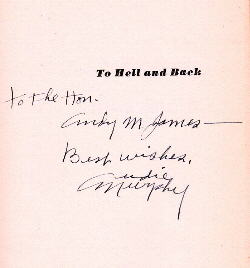 To Hell and Back
To the Hon.
Andy M. James—
Best wishes,
Audie
Murphy